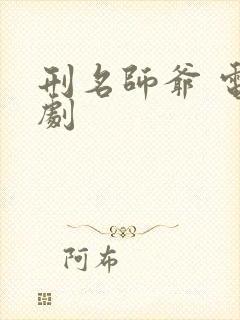 刑名師爺 電
劇
阿布